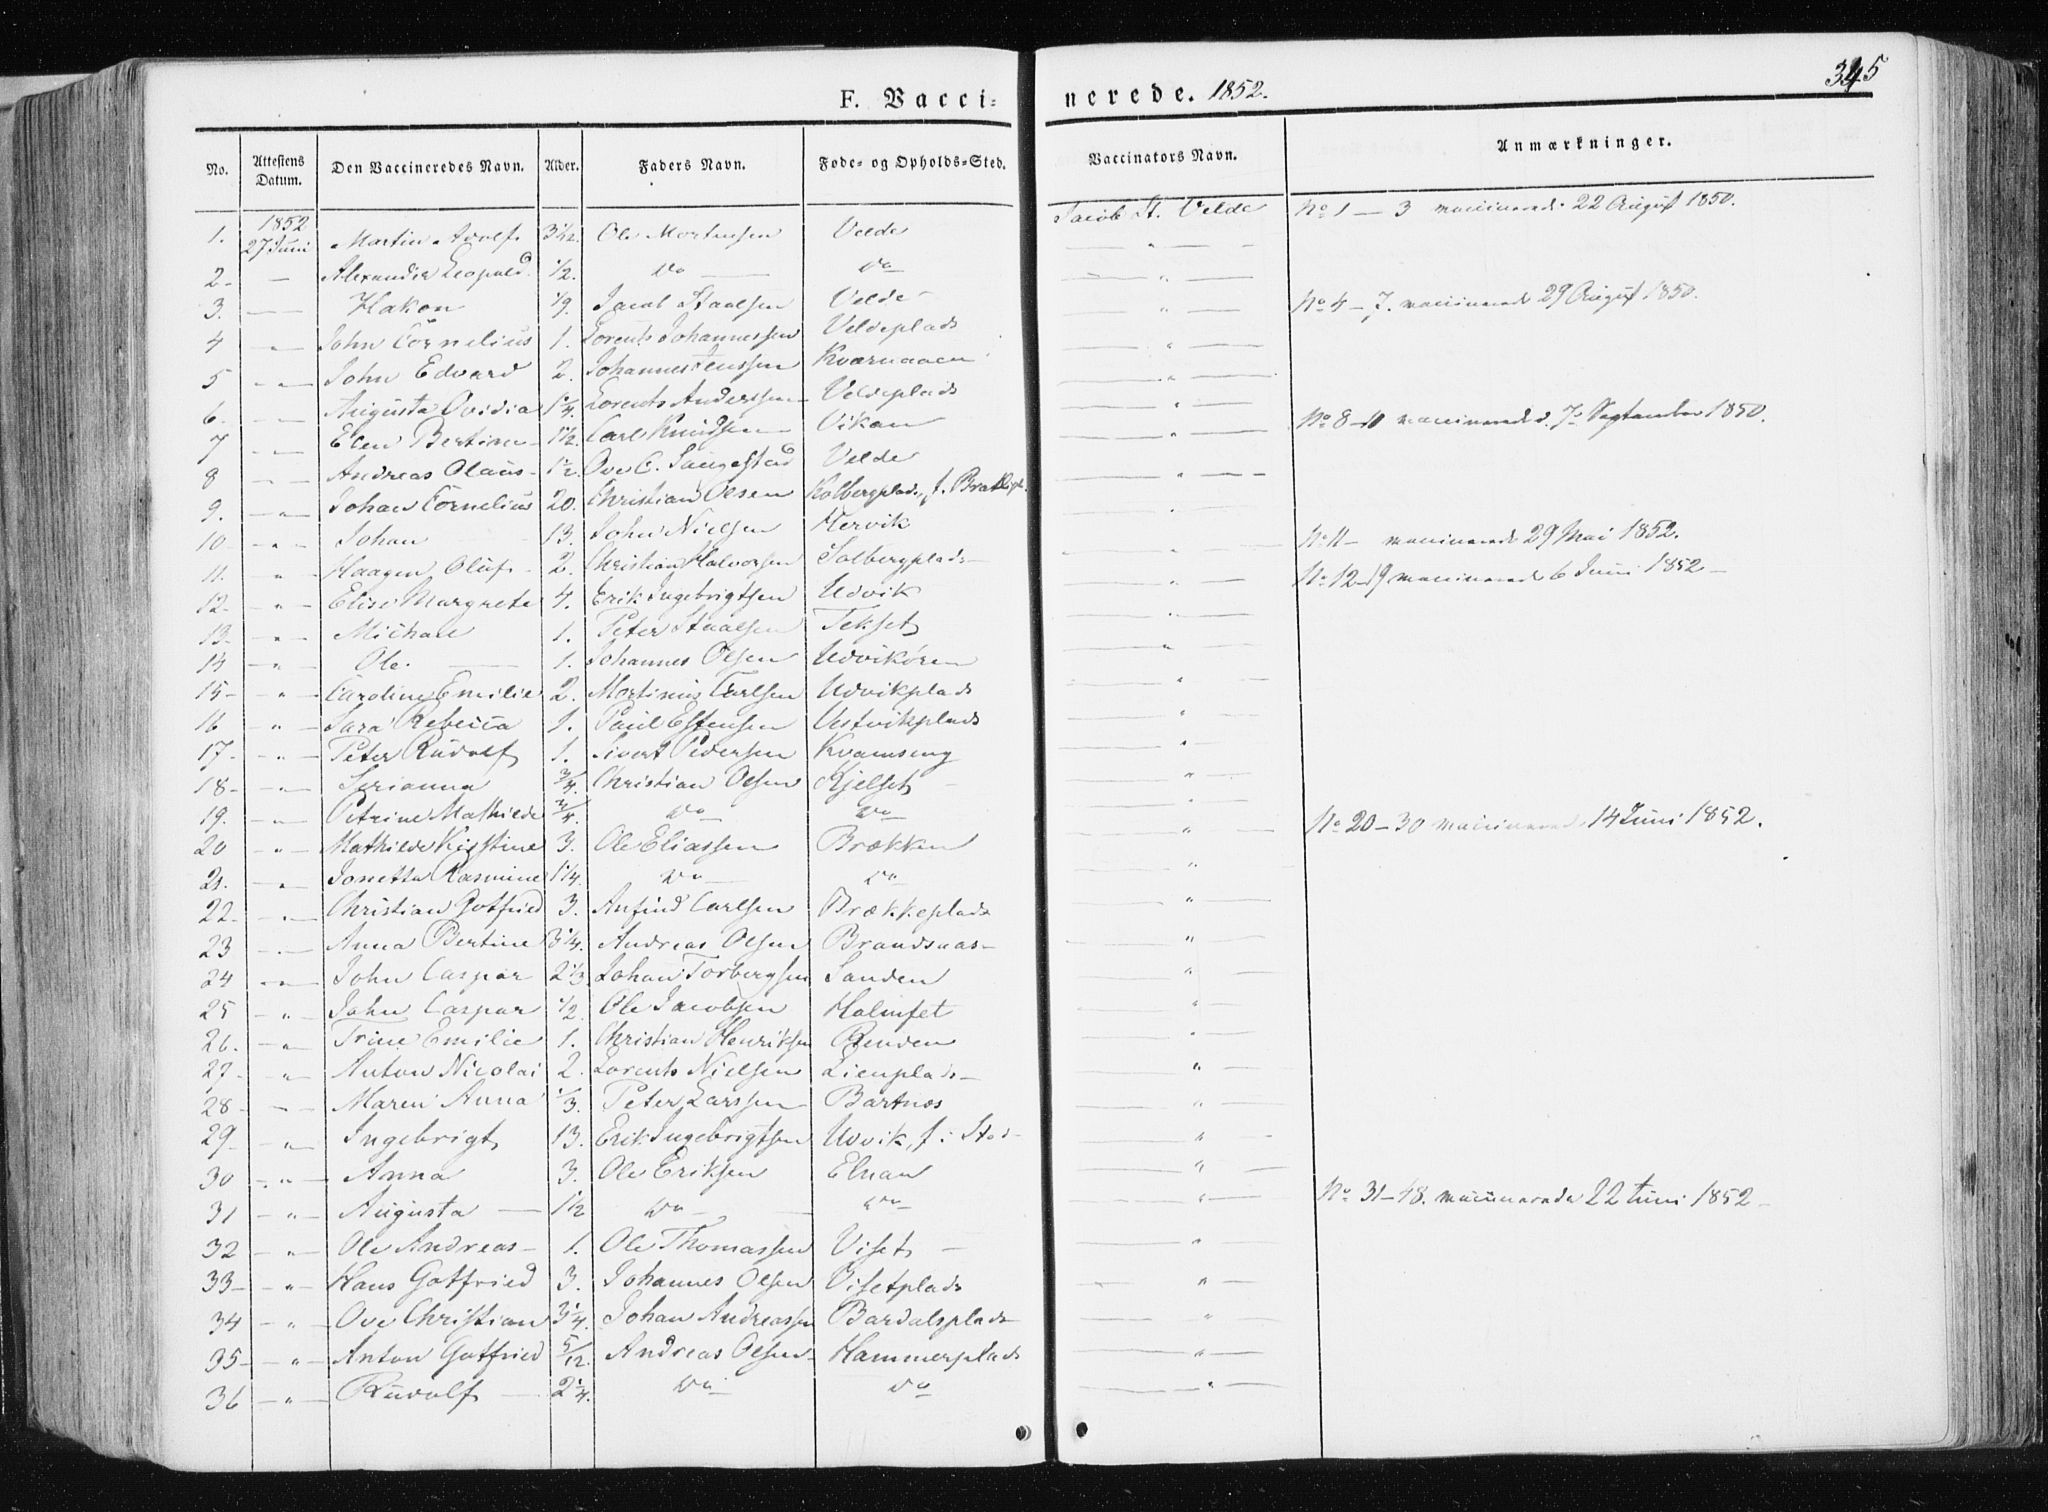 345
F. Vacci= nerede. 1852.
No. Attestens Datum. Den Vaccineredes Navn. Alder. Faders Navn. Føde- og Opholds-Sted. Vaccinators Navn. Anmærkninger.
1. 1852 27 Juni Martin Adolf 3 1/12. Ole Mortensen Velde Jacob St. Velde No 1 — 3 vaccinerede 22 August 1850.
2. — Alexander Leopold 1/2. Do — Do — " —
3. — Hakon 1/9. Jacob Staalsen Velde — " — No 4 — 7. vaccinerede 29 August 1850.
4 — " — John Cornelius 1. Lorents Johannessen Veldeplads — " —
5 — " — John Edvard 2. Johannes Jenssen Kvarnaaen — " —
6. — " — Augusta Ovidia 1 1/4. Lorents Anderssen Veldeplads — " —
7 — " — Elen Bertine 1 1/2. Carl Knudsen Vikan — " — No 8—10 vaccinerede d. 7de September 1850.
8 — " — Andreas Olaus 1 1/2. Ove C. Saugestad Velde — " —
9. — " — Johan Cornelius 20. Christian Olsen Kolbergplads, f. Bratlipl. — " —
10 — " — Johan 13. John Nielsen Hervik — " —
11. " — Haagen Oluf 2. Christian Halvorsen Solbergplads — " — No 11 — vaccinerede 29 Mai 1852.
12 — " Elise Margrete 4. Erik Ingebrigtsen Udvik — " — No 12—19 vaccinerede 6 Juni 1852 —
13 — " — Michael 1. Peter Staalsen Tekset — " —
14 — " — Ole. — 1. Johannes Olsen Udvikøren — " —
15 — " — Caroline Emilie 2. Martinus Carlsen Udvikplads — " —
16 — " — Sara Rebecca 1. Paul Estensen Vestvikplads — " —
17 — " — Peter Rudolf 1. Sivert Pedersen Kvamseng — " —
18 — " — Serianna 3/4. Christian Olsen Kjelset — " —
19. — " — Petrine Mathilde 3/4. Do Do — " —
20 — " — Mathilde Kirstine 3. Ole Eliassen Brækken — " — No 20—30 vaccinerede 14 Juni 1852.
21. — " — Jonetta Rasmine 1 1/4. Do — Do — " —
22 — " — Christian Gotfried 3. Anfind Carlsen Brækkeplads — " —
23 — " — Anna Bertine 3 1/4. Andreas Olsen Brandsnas — " —
24 — " — John Caspar 2 1/3 Johan Torbergsen Sanden — " —
25 — " — John Caspar 1/2 Ole Jacobsen Holmset — " —
26. — " — Trine Emilie 1. Christian Henriksen Renden — " —
27 — " — Anton Nicolai 2. Lorents Nielsen Lienplads — " —
28 — " — Maren Anna 1/3. Peter Larssen Bartnes — " —
29 — " — Ingebrigt 13. Erik Ingebrigtsen Udvik, f. i Stod — " —
30 — " — Anna 3. Ole Eriksen Elnan — " —
31 — " — Augusta — 1 1/2 Do — Do — " — No 31—48. vaccinerede 22 Juni 1852 —
32 — " — Ole Andreas 1. Ole Thomassen Viset — " —
33 — " — Hans Gotfried 3. Johannes Olsen Visetplads — " —
34 — " — Ove Christian 3 1/4. Johan Andreassen Bardalsplads — " —
35 — " — Anton Gotfried 5/12. Andreas Olsen Hammerplads — " —
36 — " — Rudolf — 2 1/4. Do Do — " —